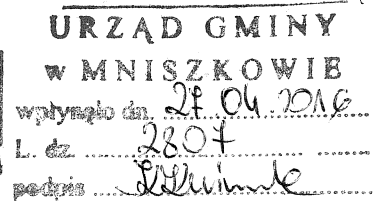 URZĄD GMINY
w MNISZKOWIE
wpłynęło dn. 27.04.2016
L. dz. 2807
podpis